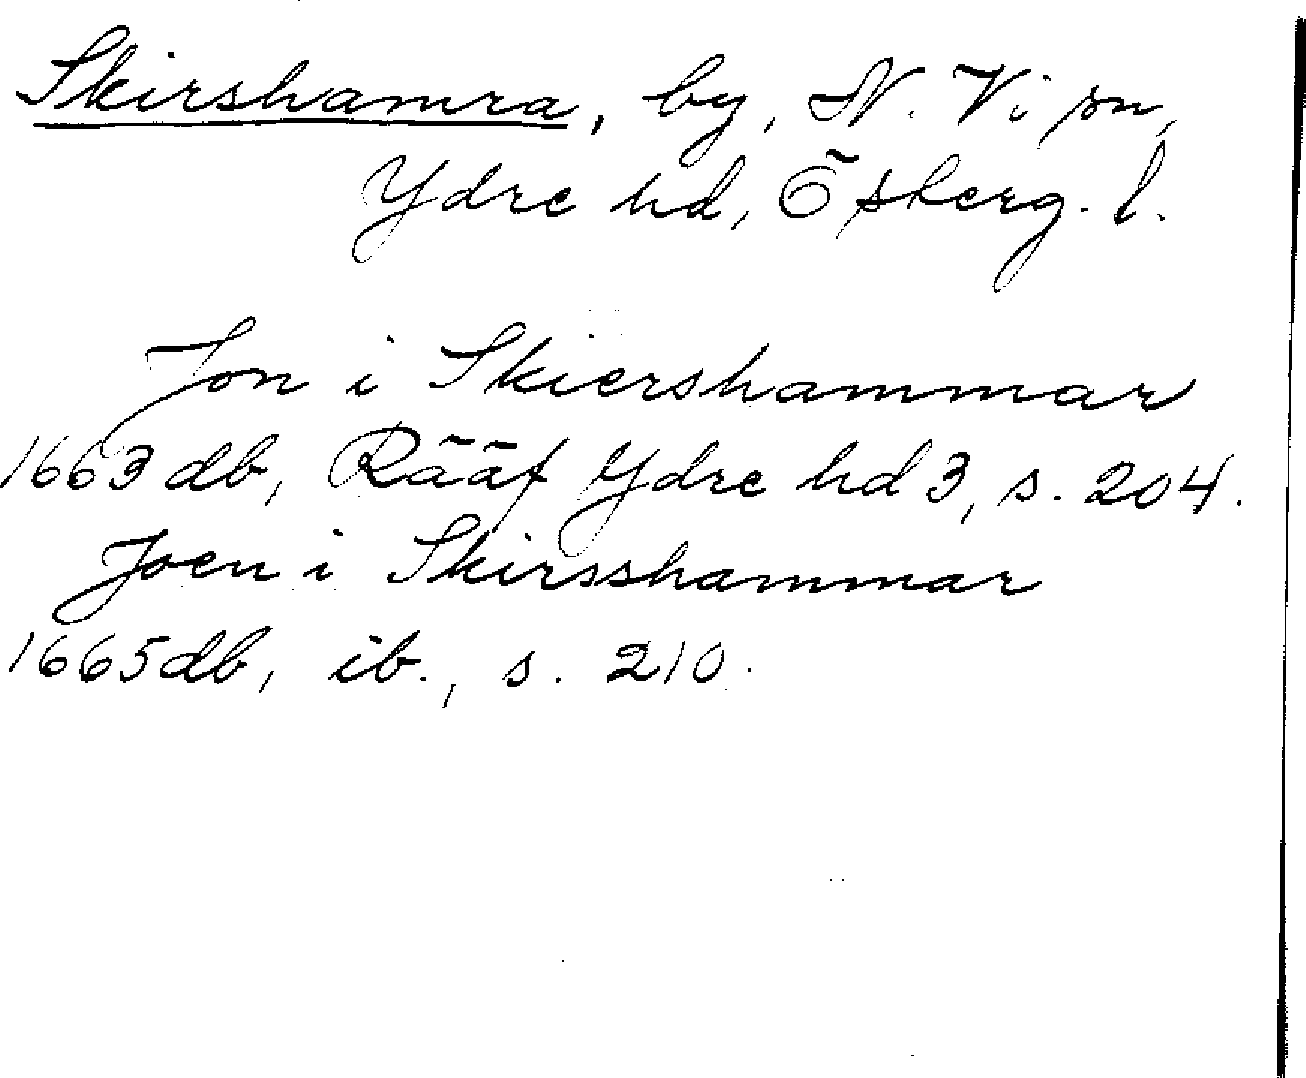 Skirshamra, by, N. Vi sn,
Ydre hd, Östberg. l.
Jon i Skiershammar
1663 db, Rääf Ydre hd 3, s. 204.
Joen i Skirsshammar
1665 db, ib., s. 210.